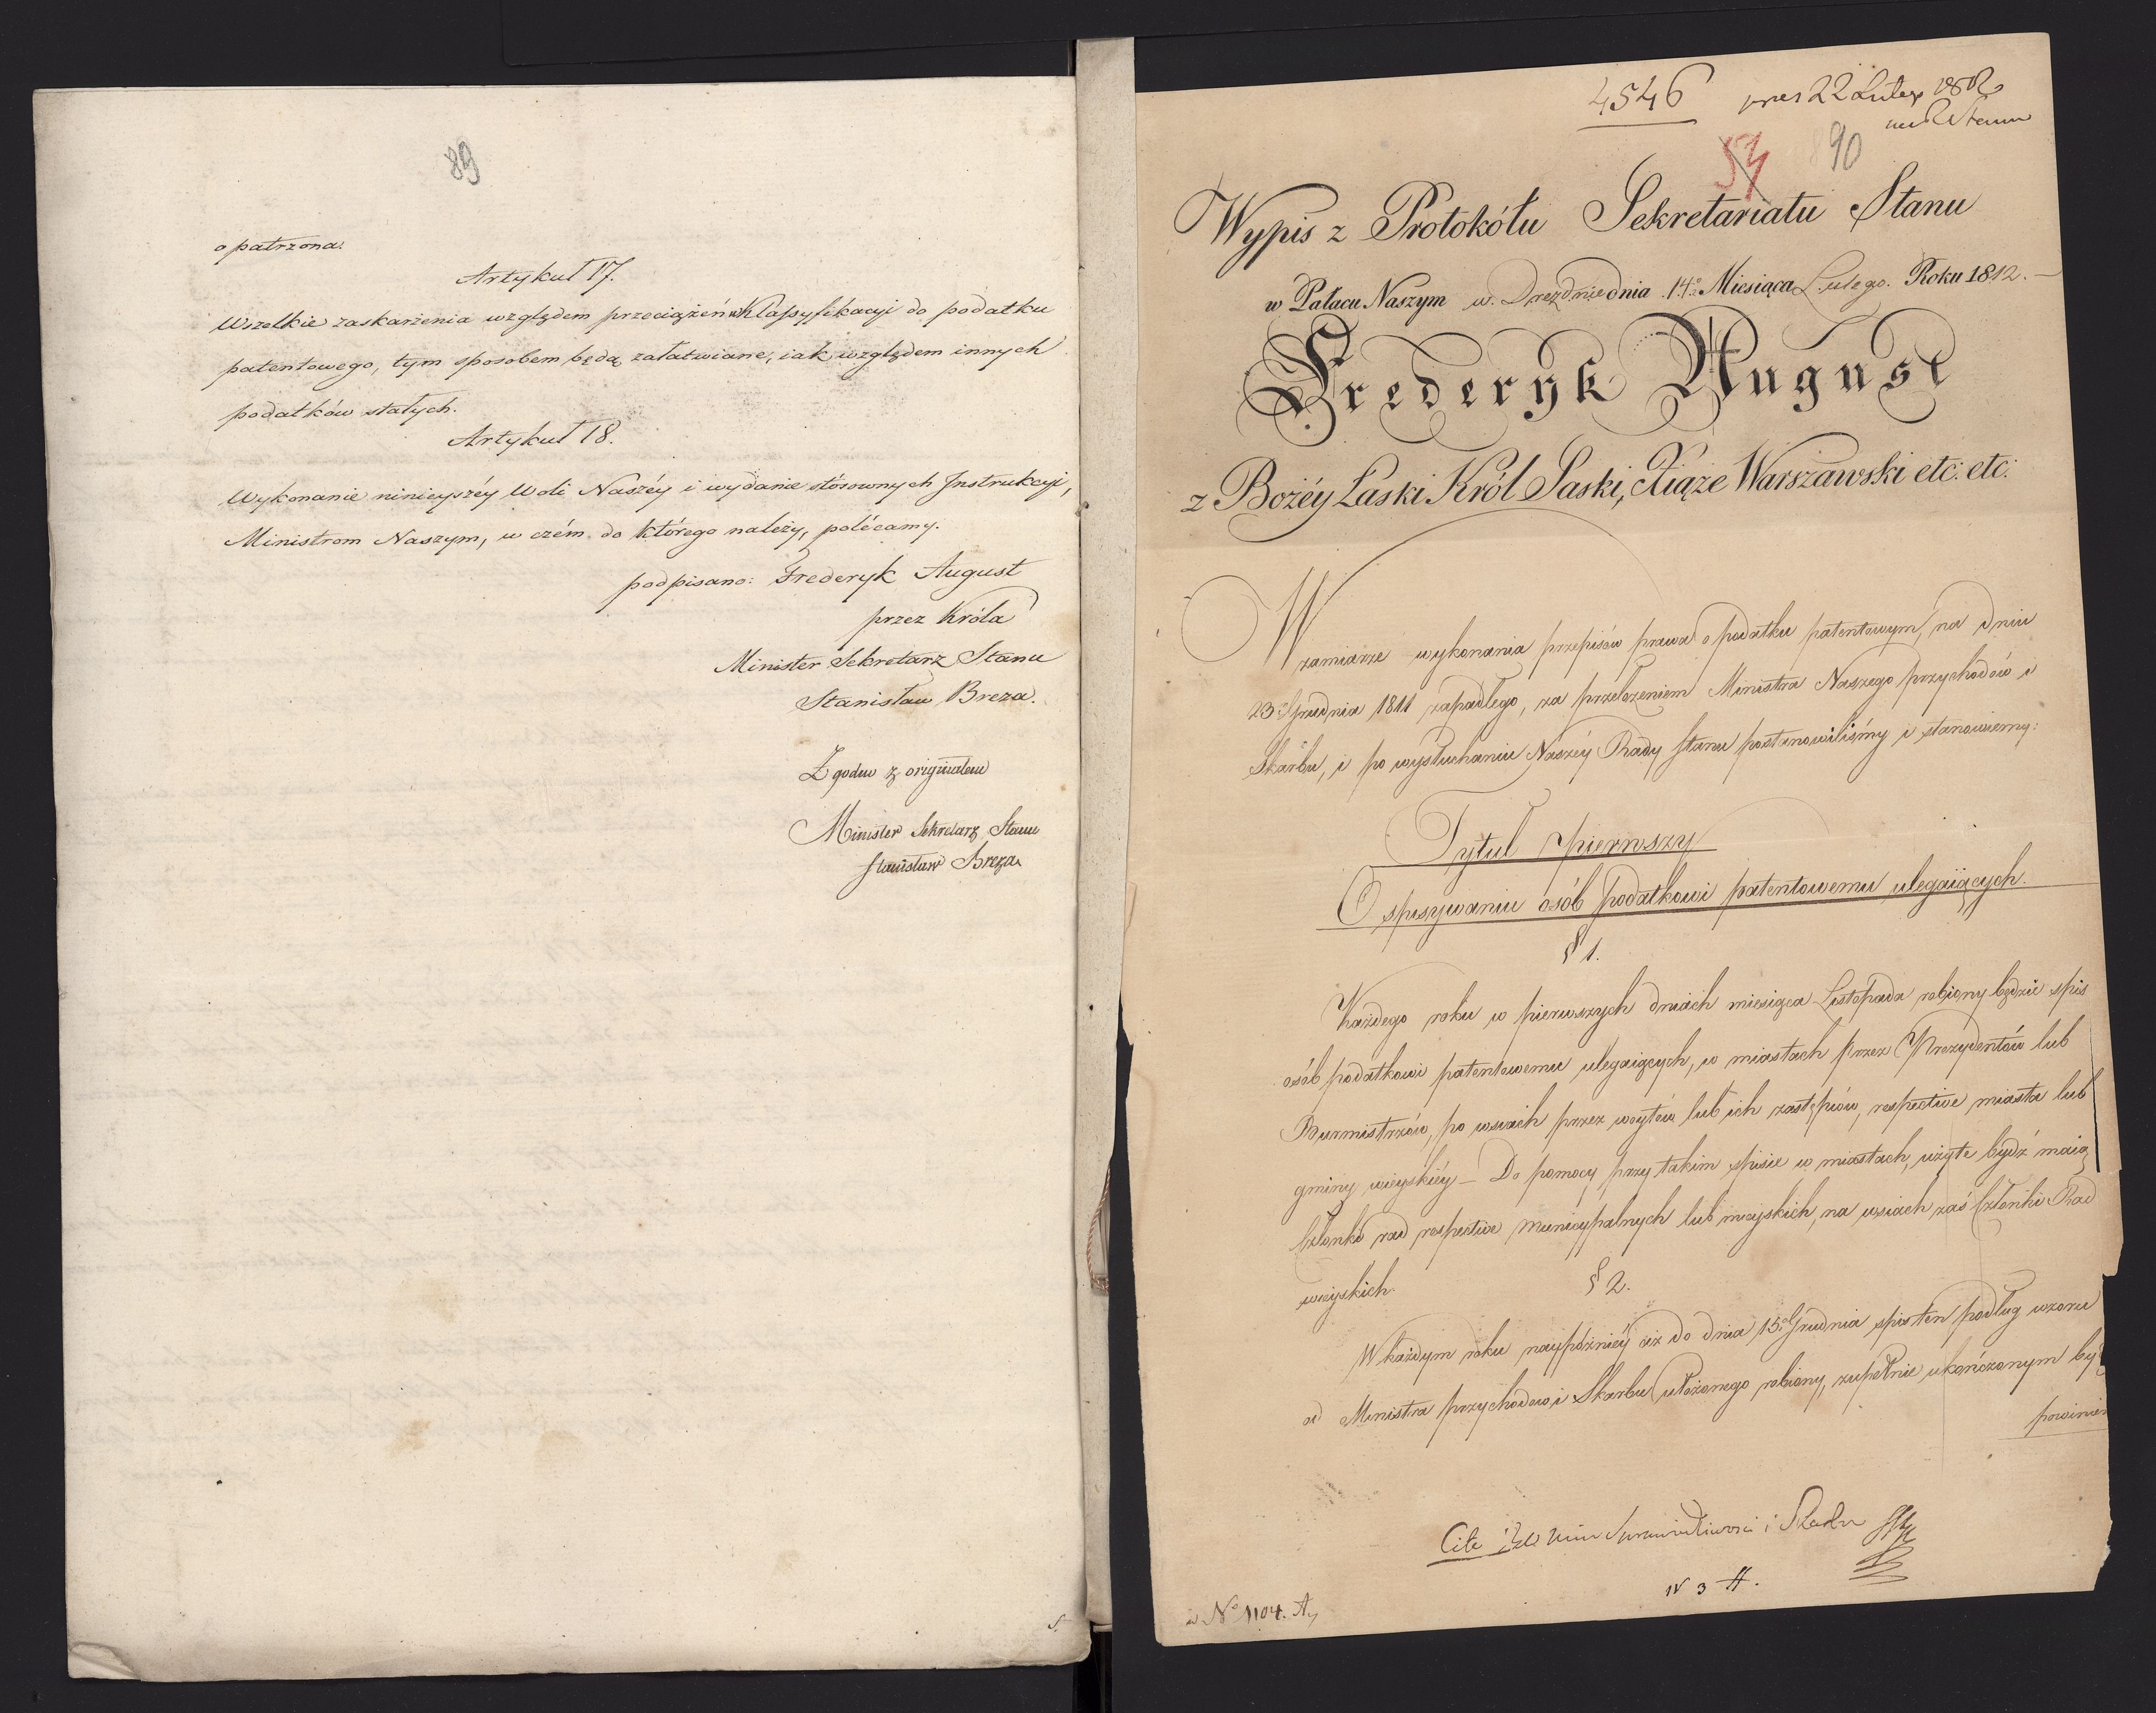 89
opatrzona.
Artykuł 17.
Wszelkie zaskarżenia względem przeciążeń w Klassyfikacyi do podatku
patentowego, tym sposobem będą załatwiane, iak względem innych
podatków stałych.
Artykuł 18.
Wykonanie ninieyszéy Woli Naszéy i wydanie stósownych Instrukcyi,
Ministrom Naszym, w czém do którego należy, polécamy.
podpisano: Frederyk August
przez Króla
Minister Sekretarz Stanu
Stanisław Breza.
Zgodno z originałem
Minister Sekretarz Stanu
Stanisław Breza
4546 22 Lutego
90
Wypis z Protokółu Sekretariatu Stanu
w Pałacu Naszym w Dreźdnie dnia 14º Miesiąca Lutego. Roku 1812.
Frederyk August
z Bożéy Łaski Król Saski, Xiąże Warszawski etc: etc:
W zamiarze wykonania przepisów prawa o podatku patentowym, na dniu
23º Grudnia 1811 zapadłego, za przełożeniem Ministra Naszego przychodów i
Skarbu, i po wysłuchaniu Naszéy Rady Stanu postanowiliśmy i stanowiemy:
Tytuł pierwszy
O spisywaniu osób podatkowi patentowemu ulegaiących.
§ 1.
Każdego roku w pierwszych dniach miesiąca Listopada robiony będzie spis
osób podatkowi patentowemu ulegaiących, w miastach przez Prezydentów lub
Burmistrzów, po wsiach przez woytów lub ich zastępców, respective miasta lub
gminy wieyskiéy - Do pomocy przy takim spisie w miastach, użyte bydź maią
Członki rad respective municypalnych lub mieyskich, na wsiach zaś Członki Rad
wieyskich.
§ 2.
W każdym roku naypóźniéy aż do dnia 15º Grudnia spis ten podług wzoru
od Ministra przychodów i Skarbu ułożonego robiony, zupełnie ukończonym bydź
powinien
Cito i Skarbu
N 3
w Nº 1104.